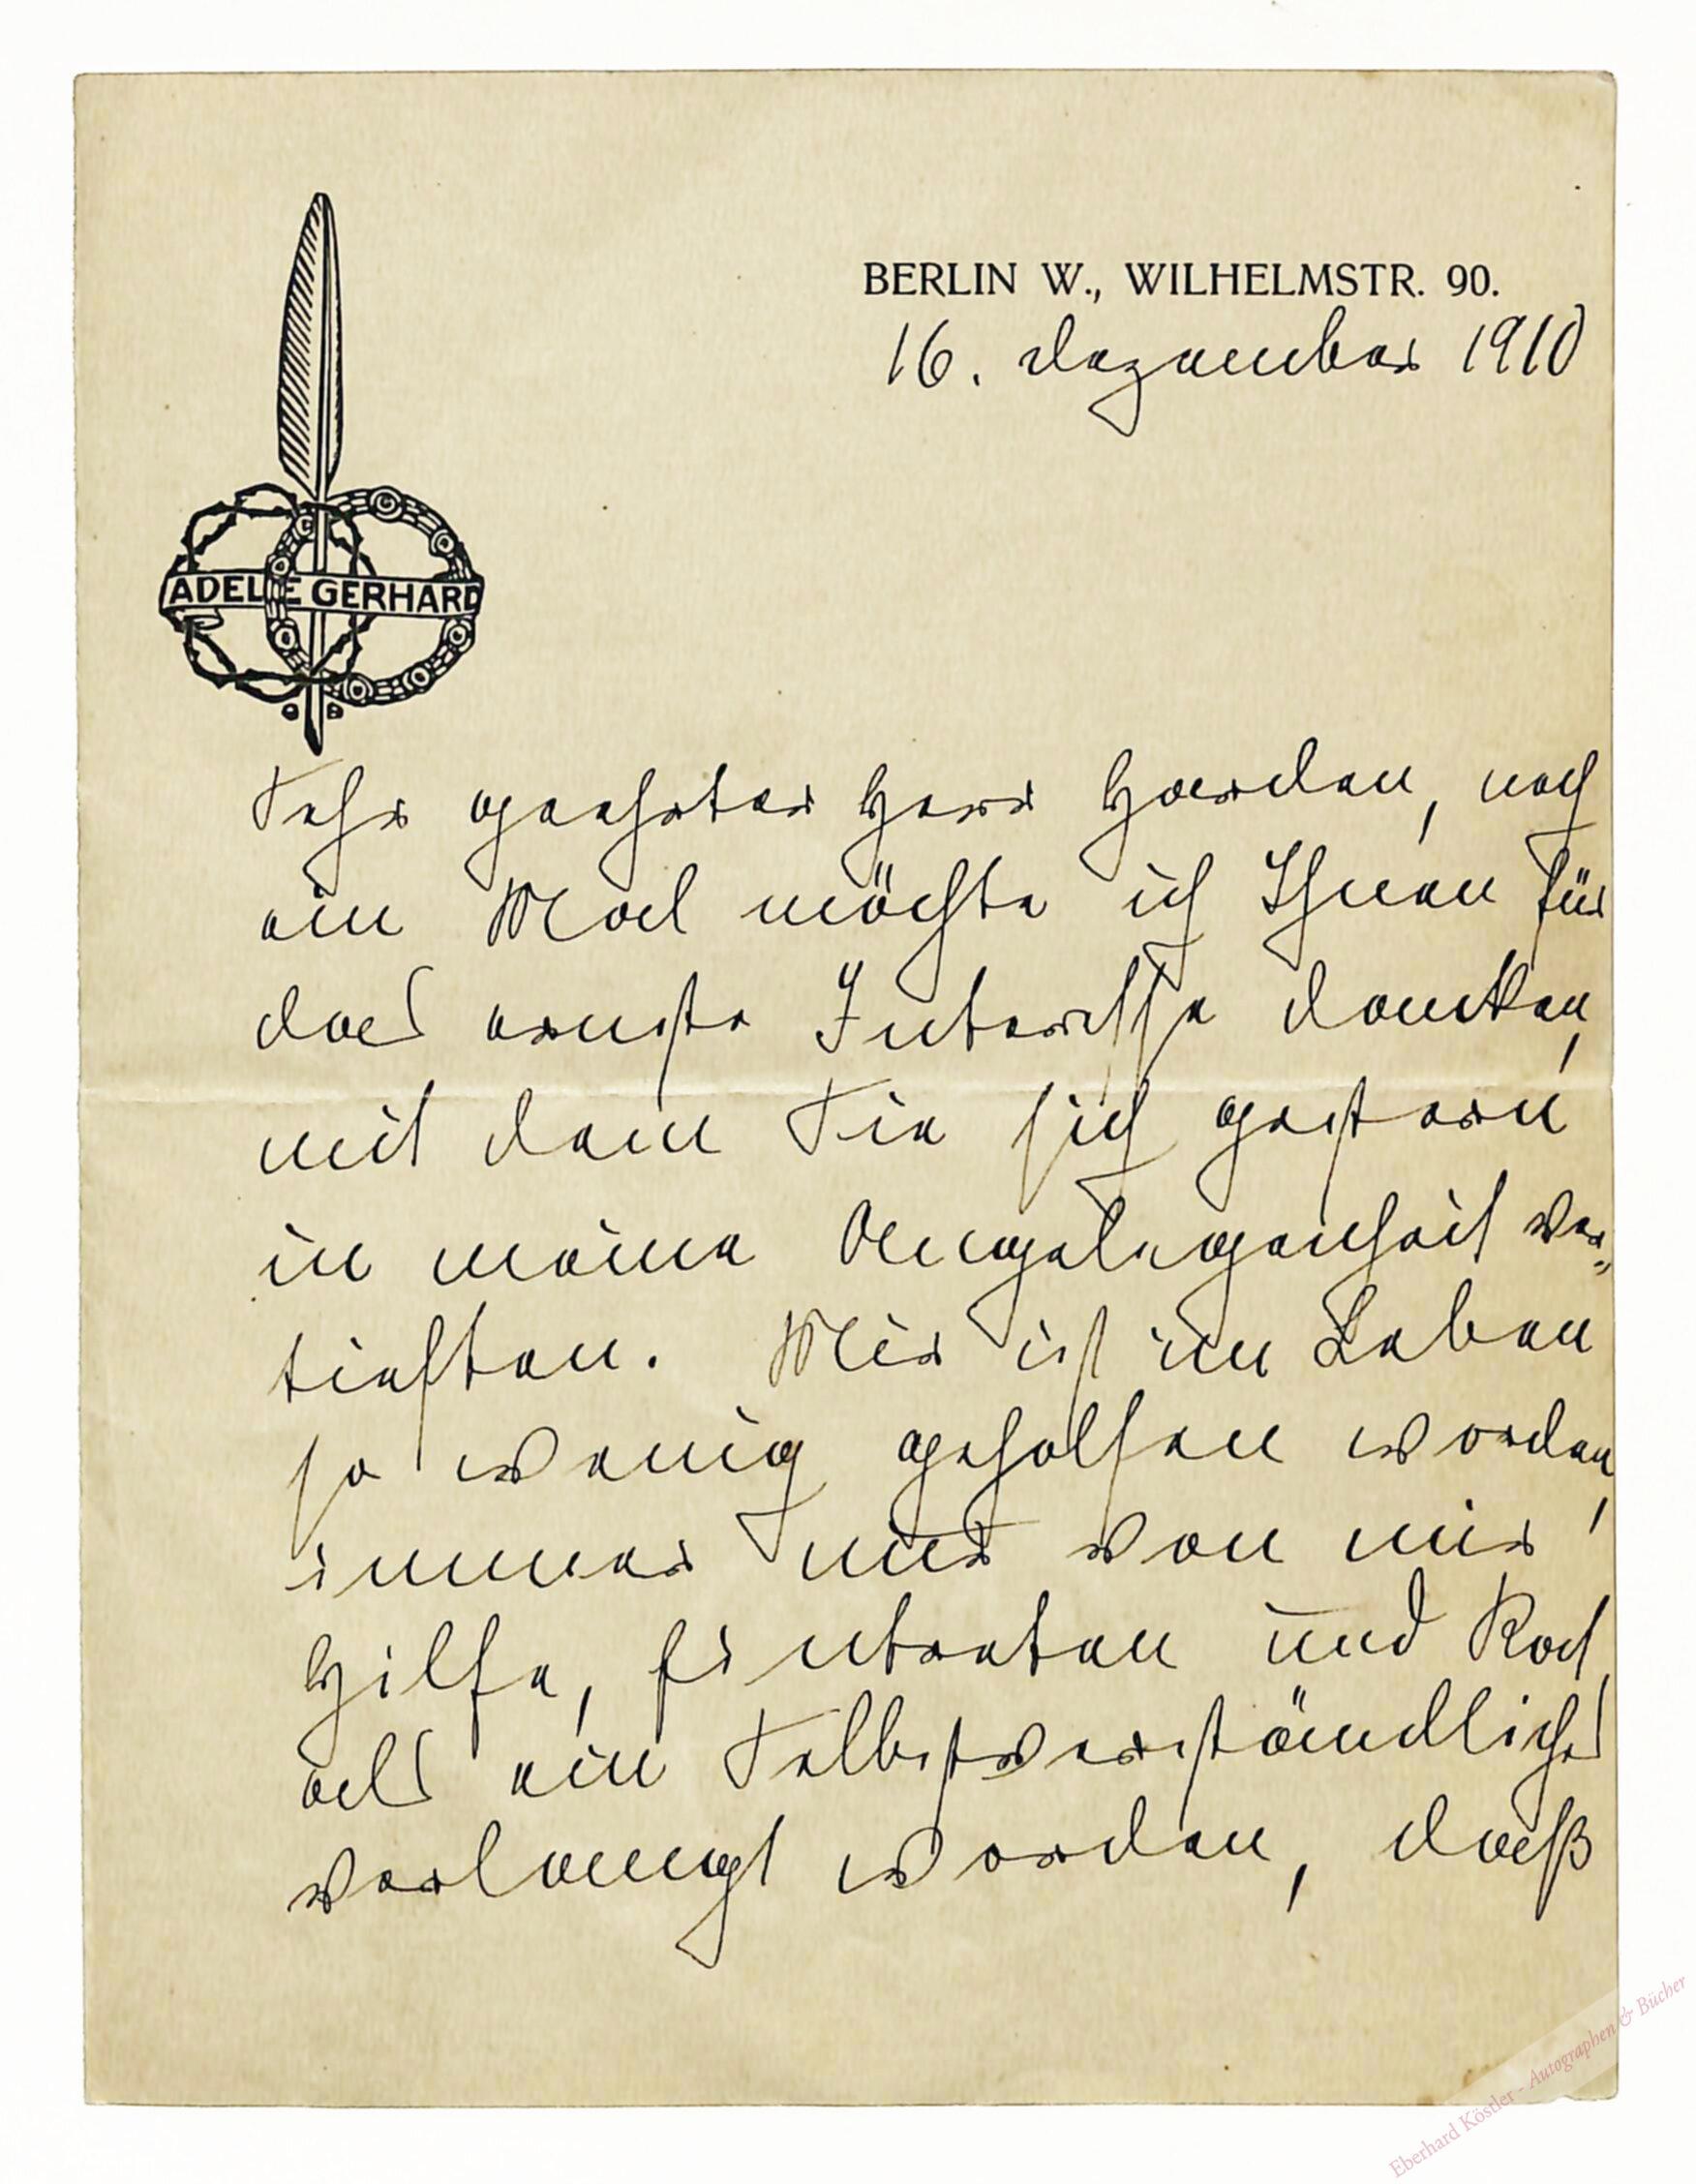 BERLIN W., WILHELMSTR. 90.
16. Dezember 1910
ADELE GERHARD
Sehr geehrter Herr Harden, noch
ein Mal möchte ich Ihnen für
das ernste Interesse danken,
mit dem Sie sich gestern
in meine Angelegenheit ver-
tieften. Mir ist im Leben
so wenig geholfen worden,
immer nur von mir
Hilfe, Eintreten und Rat
als ein Selbstverständliches
verlangt worden, daß
Eberhard Köstler - Autographen & Bücher